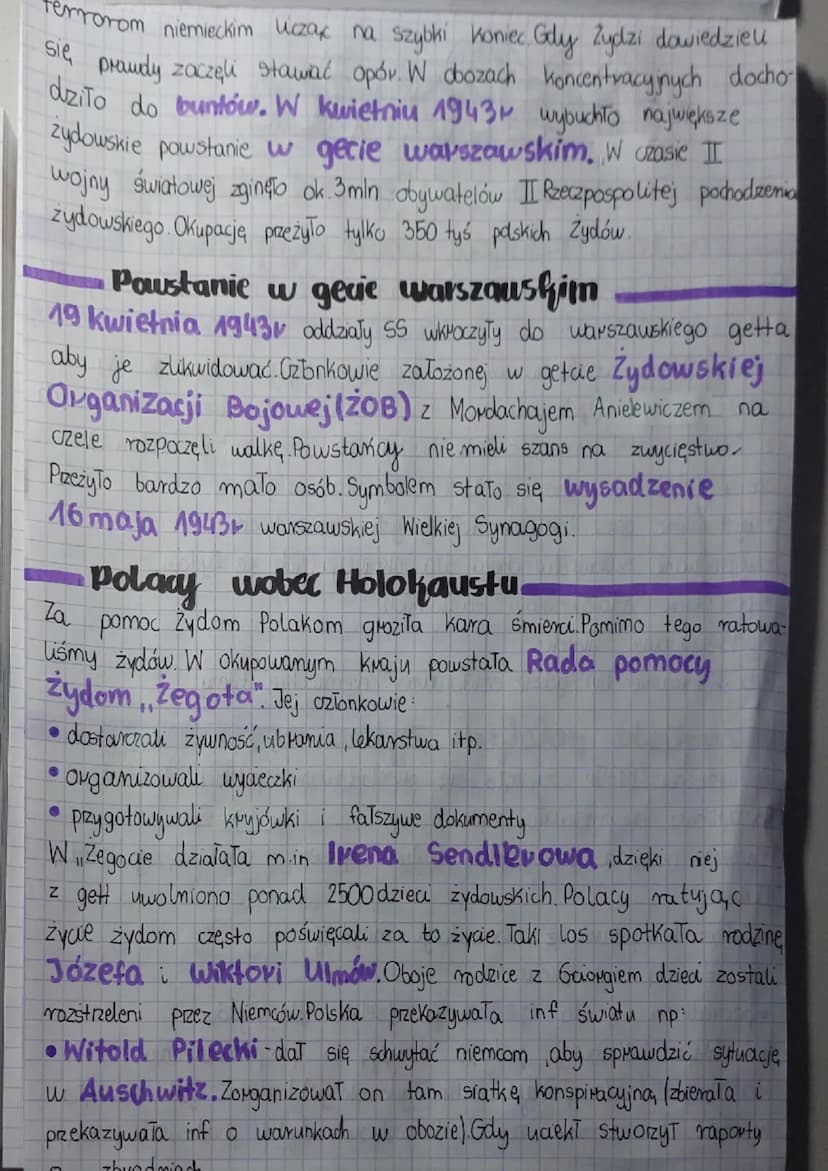 terrorom niemieckim licząc na szybki koniec. Gdy Żydzi dowiedzieli
się prawdy zaczęli stawać opór. W obozach koncentracyjnych docho-
dziło do buntów. W kwietniu 1943r wybuchło największe
żydowskie powstanie w gecie warszawskim. W czasie II
wojny światowej zginęło ok. 3mln obywatelów II Rzeczpospolitej pochodzenia
żydowskiego. Okupację przeżyło tylko 350 tyś polskich Żydów.
Powstanie w gecie warszawskim
19 kwietnia 1943r oddziały SS wkroczyły do warszawskiego getta
aby je zlikwidować. Członkowie założonej w getcie Żydowskiej
Organizacji Bojowej (ŻOB) z Mordachajem Anielewiczem na
czele rozpoczęli walkę. Powstańcy nie mieli szans na zwycięstwo.
Przeżyło bardzo mało osób. Symbolem stało się wysadzenie
16 maja 1943r warszawskiej Wielkiej Synagogi.
Polacy wobec Holokaustu
Za pomoc Żydom Polakom groziła kara śmierci. Pomimo tego ratowa-
liśmy żydów. W okupowanym kraju powstała Rada pomocy
Żydom „Żegota". Jej członkowie:
• dostarczali żywność, ubrania, lekarstwa itp.
• organizowali wycieczki
• przygotowywali kryjówki i fałszywe dokumenty
W „Żegocie działała m.in Irena Sendlerowa, dzięki niej
z gett uwolniono ponad 2500 dzieci żydowskich. Polacy ratując
życie żydom często poświęcali za to życie. Taki los spotkała rodzinę
Józefa i Wiktori Ulmów. Oboje rodzice z 6ciorgiem dzieci zostali
rozstrzeleni przez Niemców. Polska przekazywała inf światu np:
• Witold Pilecki - dał się schwytać niemcom, aby sprawdzić sytuację
w Auschwitz. Zorganizował on tam siatkę konspiracyjną (zbierała i
przekazywała inf o warunkach w obozie). Gdy uciekł stworzył raporty
o zbrodniach